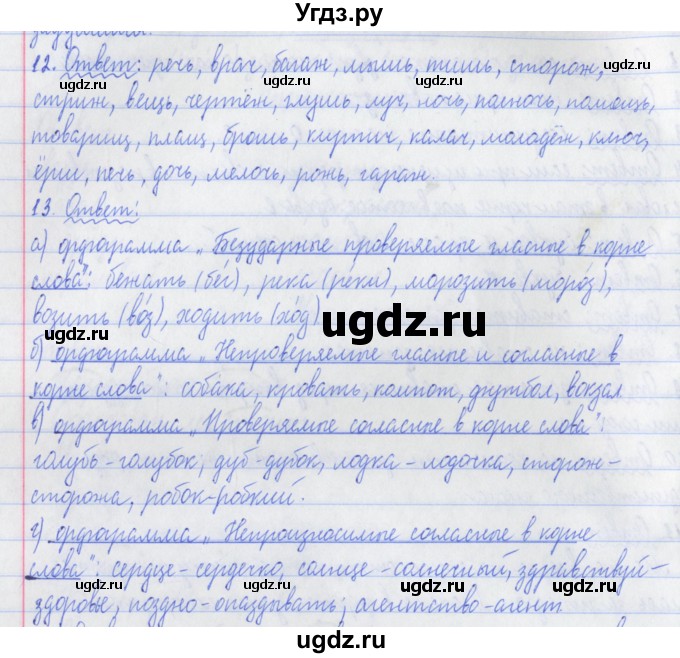 Угдз.ру
задумалась.
12. Ответ: речь, врач, багаж, мышь, тишь, сторож,
стриж, вещь, чертёж, глушь, луч, ночь, полночь, помощь,
товарищ, плащ, брошь, кирпич, калач, молодёж, ключ,
ёрш, печь, дочь, мелочь, рожь, гараж.
13. Ответ:
а) орфограмма „Безударные проверяемые гласные в корне
слова": бежать (бег), река (реки), морозить (мороз),
возить (воз), ходить (ход)
б) орфограмма „Непроверяемые гласные и согласные в
корне слова": собака, кровать, компот, футбол, вокзал
в) орфограмма „Проверяемые согласные в корне слова":
голубь - голубок, дуб - дубок, лодка - лодочка, сторож -
сторожа, робок - робкий.
г) орфограмма „Непроизносимые согласные в корне
слова": сердце - сердечко, солнце - солнечный, здравствуй -
здоровье, поздно - опаздывать, агентство - агент.
ugdz.ru